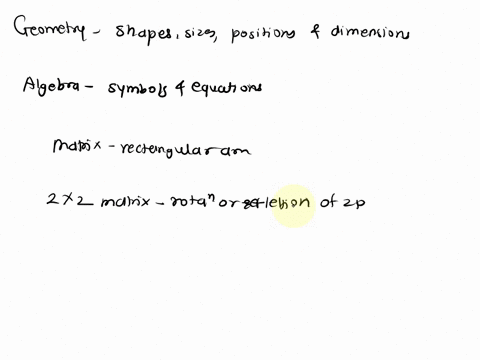 Geometry - shapes, sizes, positions & dimensions
Algebra - symbols & equations
matrix - rectangular arr
2 × 2 matrix - rotaⁿ or of 2D